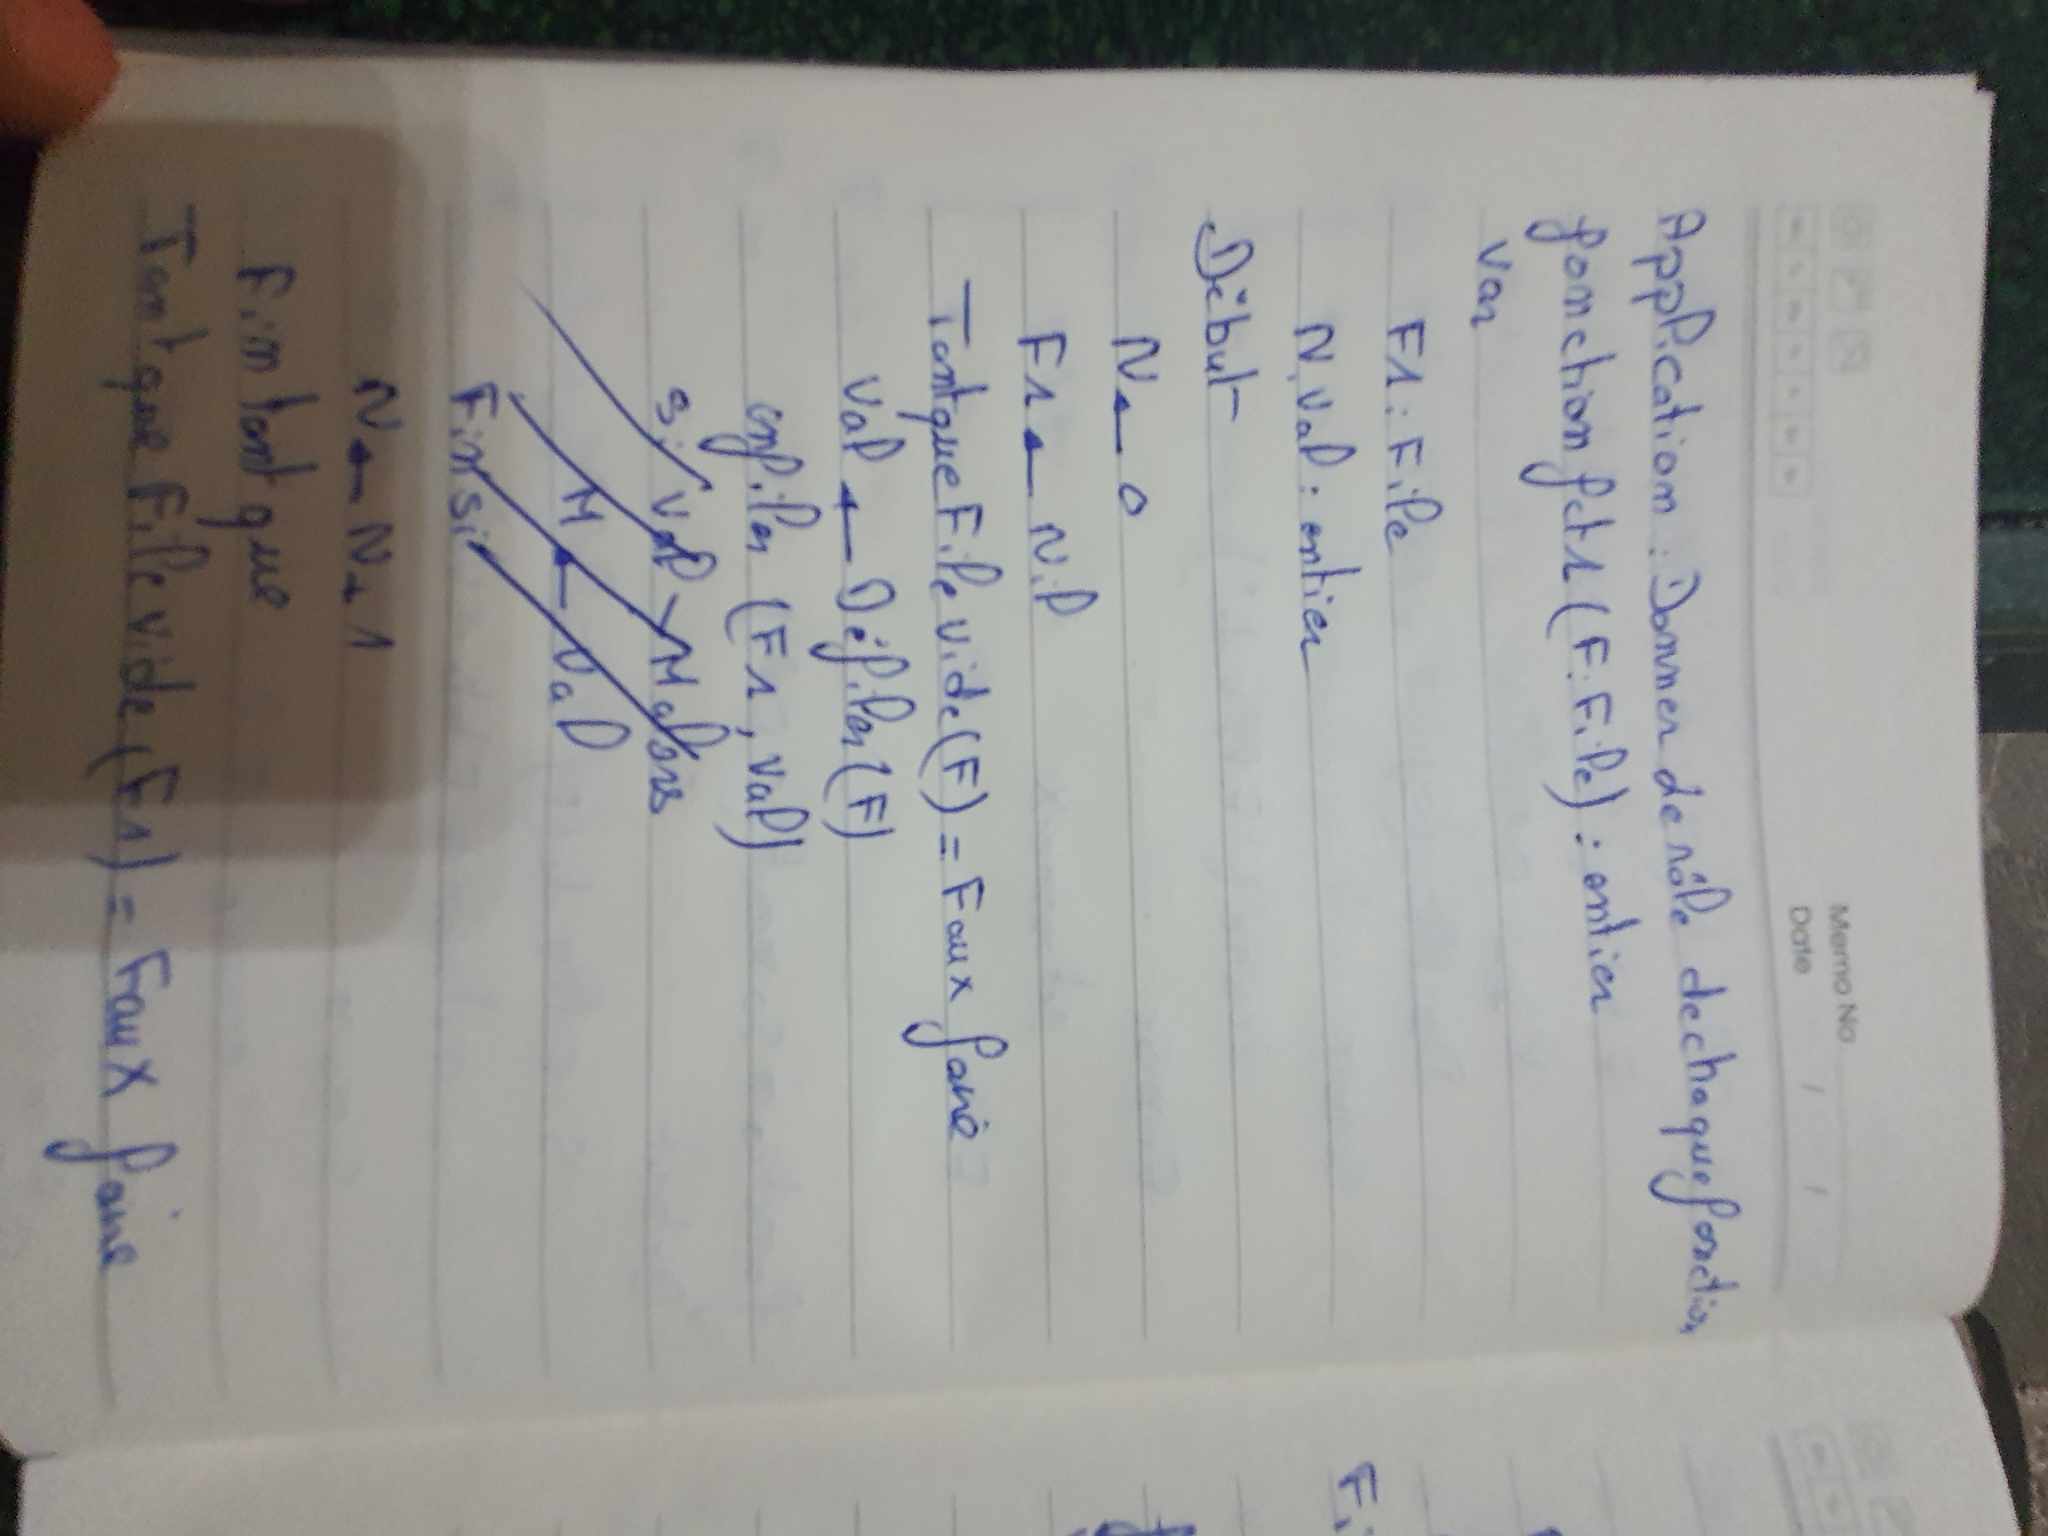 Memo No
Date / /
Application : Donner de rôle de chaque fonction
fonction fct1 (F: File) : entier
Var
F1 : File
N, val : entier
Début
N ← 0
F1 ← Nil
Tant que File vide (F) = Faux faire
Val ← Défiler (F)
enfiler (F1, val)
Si Val > M alors
M ← Val
Finsi
N ← N + 1
Fin tant que
Tant que File vide (F1) = Faux faire